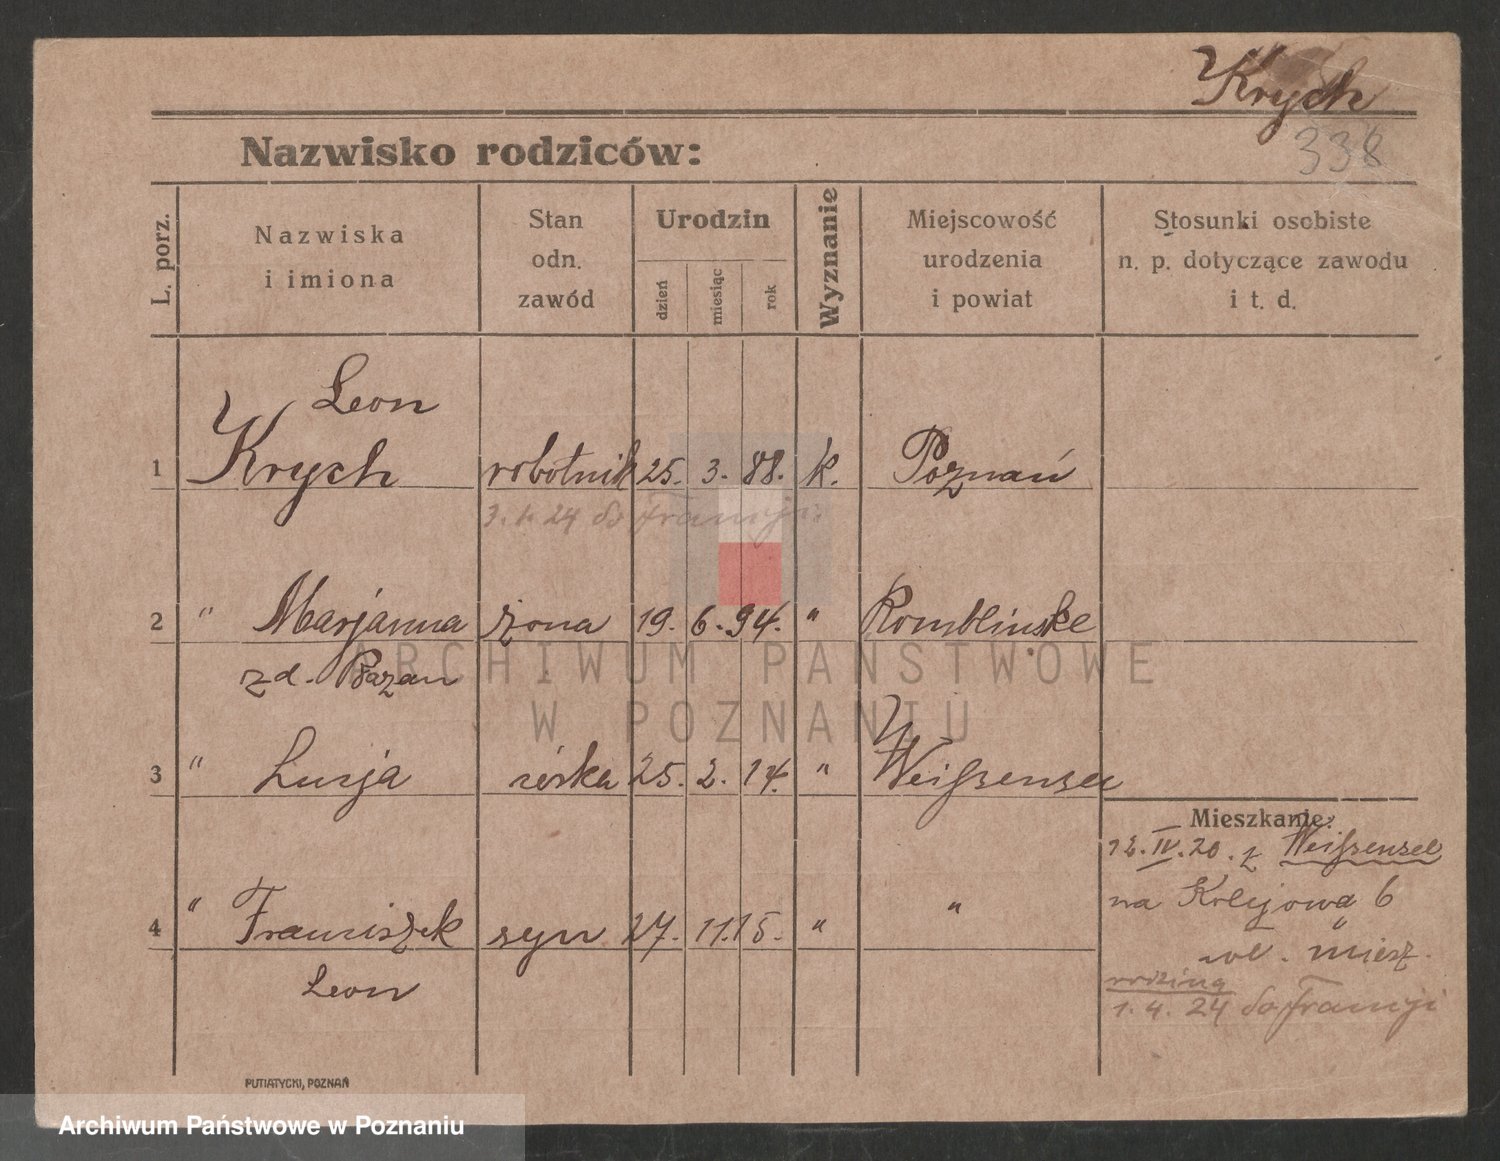 Krych
338
Nazwisko rodziców:
L. porz.
Nazwiska
i imiona
Stan
odn.
zawód
Urodzin
dzień
miesiąc
rok
Wyznanie
Miejscowość
urodzenia
i powiat
Stosunki osobiste
n. p. dotyczące zawodu
i t. d.
Leon
1 Krych robotnik 25. 3. 88. k. Poznań
3. 1. 24 do Francji
2 " Marjanna żona 19. 6. 94. " Romblinske
zd. Bazan
3 " Lucja córka 25. 2. 14. " Weißensee
4 " Franciszek syn 27. 11. 15. " "
Leon
Mieszkanie:
12. IV. 20. z Weißensee
na Kolejową 6
wł. miesz.
rodzina
1. 4. 24 do Francji
PUTIATYCKI, POZNAŃ
ARCHIWUM PAŃSTWOWE
W POZNANIU
Archiwum Państwowe w Poznaniu